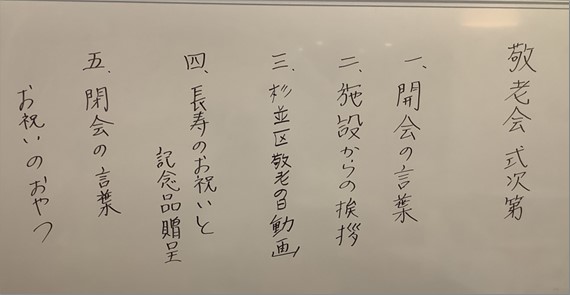 敬老会 式次第
一、開会の言葉
二、施設からの挨拶
三、杉並区敬老の日動画
四、長寿のお祝いと
記念品贈呈
五、閉会の言葉
お祝いのおやつ